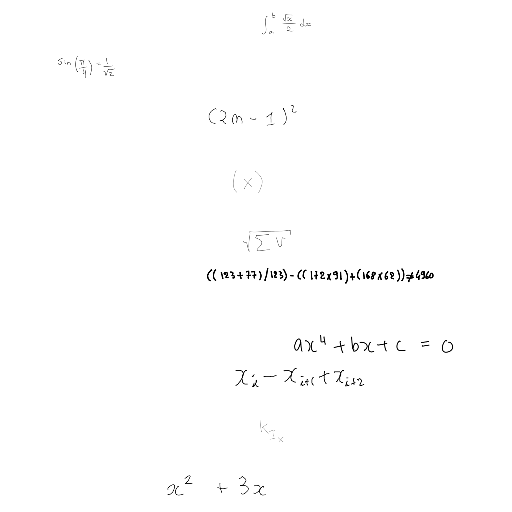 \int_a^b \frac{\sqrt{x}}{2} dx
\sin\left(\frac{\pi}{4}\right) = \frac{1}{\sqrt{2}}
(2n - 1)^2
(x)
\sqrt{\sum V}
((123+77)/123)-((172×91)+(168×62))≠4960
ax^4 + bx + c = 0
x_i - x_{i+1} + x_{i+2}
k_{I_x}
x^2 + 3x